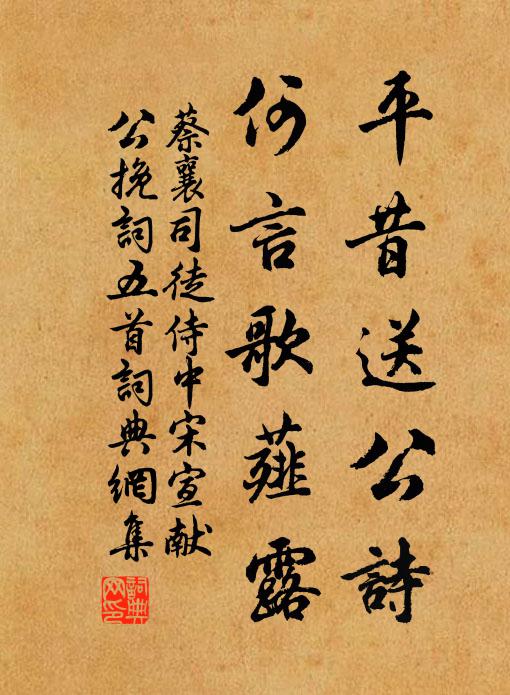 平昔送公詩
何言歌薤露
蔡襄司徒侍中宋宣献
公挽詞五首詞典網集
詞典网印